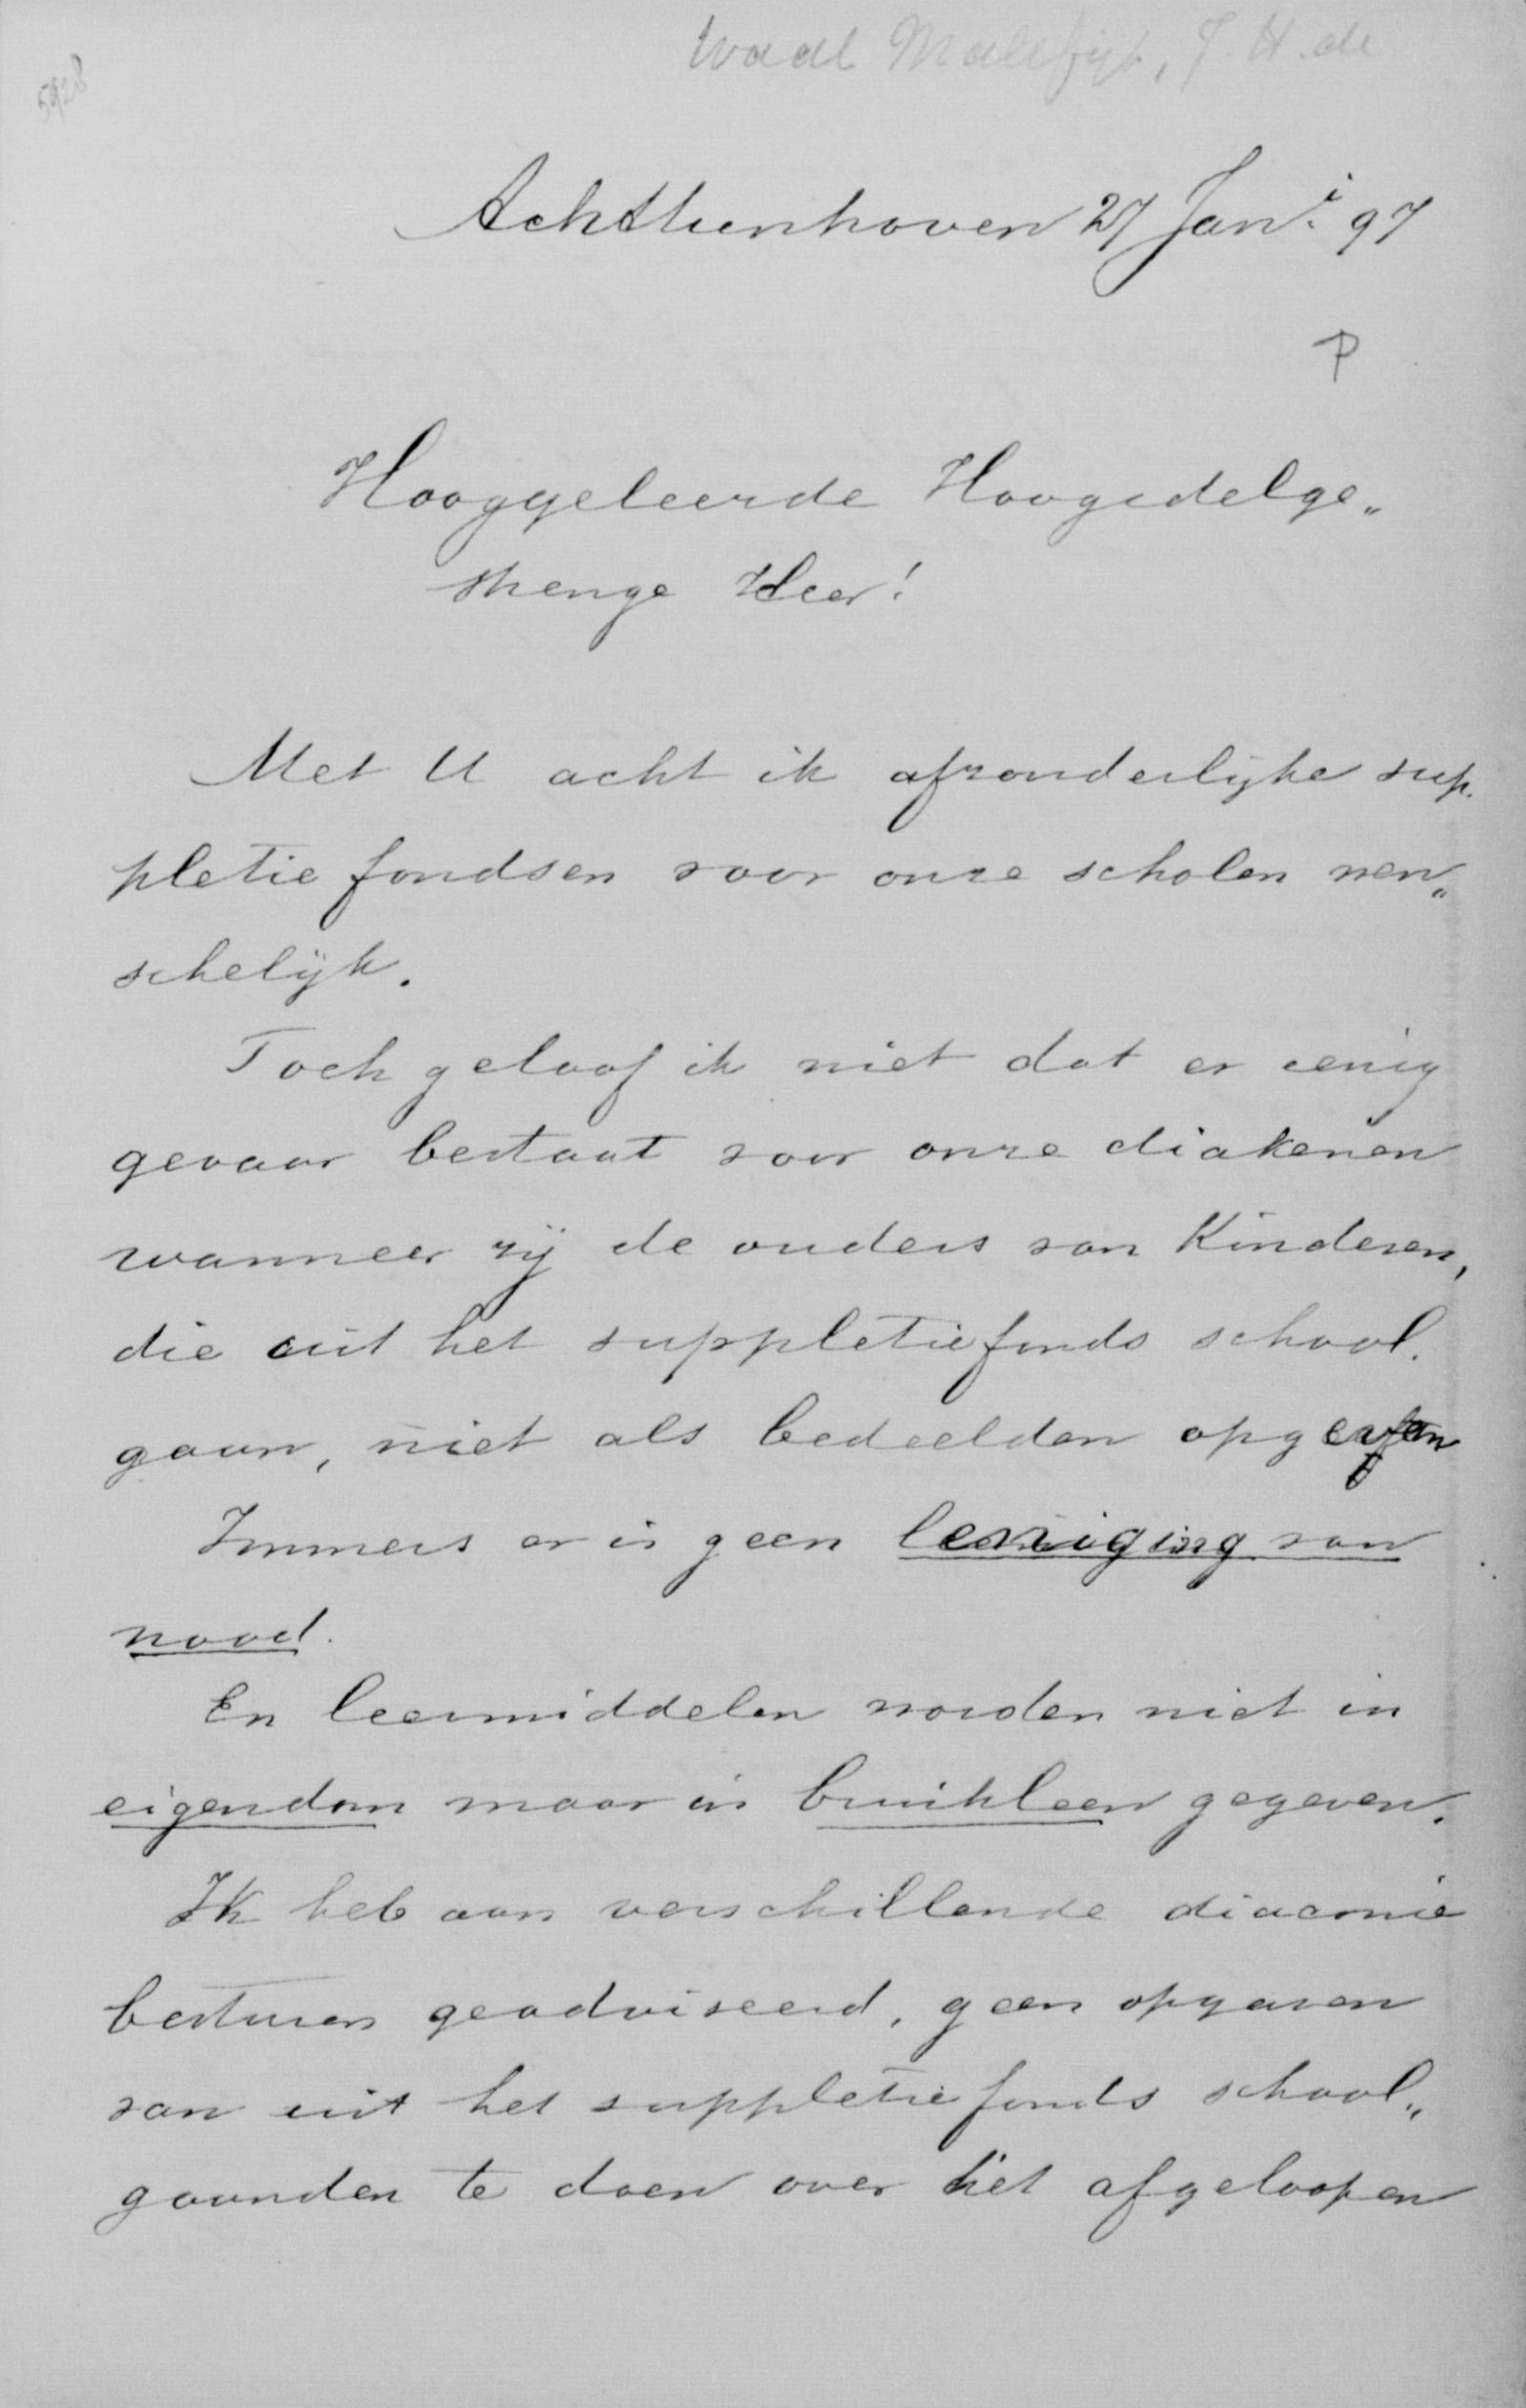 Waal Malefijt, J. H. de
5928
Achttienhoven 27 Jan.i 97
P
Hooggeleerde Hoogedelge„
strenge Heer!
Met U acht ik afzonderlijke sup.
pletie fondsen voor onze scholen wen„
schelijk.
Toch geloof ik niet dat er eenig
gevaar bestaat voor onze diakenen
wanneer zij de ouders van Kinderen,
die uit het suppletiefonds school.
gaan, niet als bedeelden opgeven
Immers er is geen leniging van
nood.
En leermiddelen worden niet in
eigendom maar in bruikleen gegeven.
Ik heb aan verschillende diaconie
besturen geadviseerd, geen opgaven
van uit het suppletie fonds school„
gaanden te doen over het afgeloopen